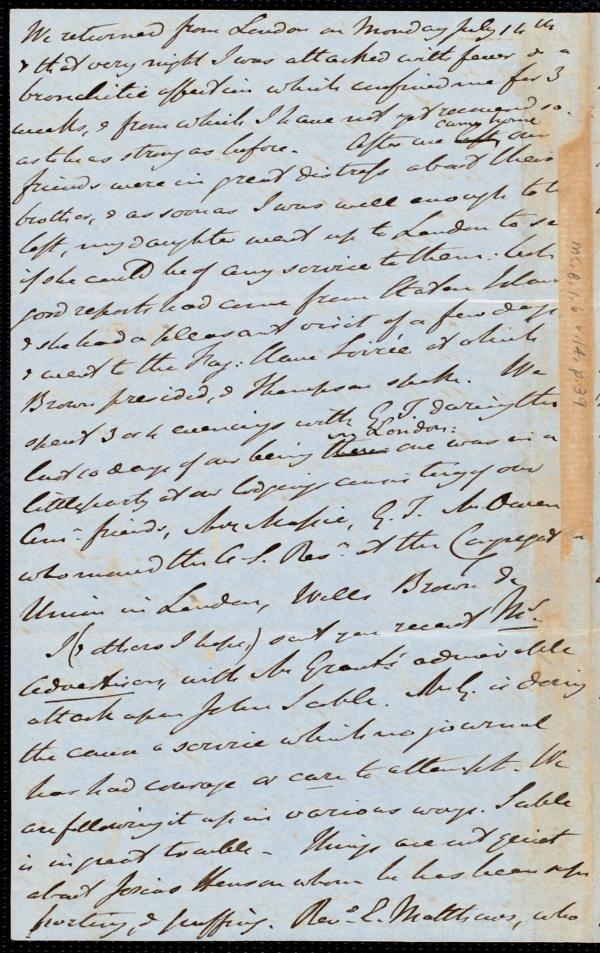 We returned from London on Monday July 14th
& that very night I was attacked with fever & a
bronchitic affection which confined me for 3
weeks, & from which I have not yet recovered so
as to be as strong as before. After we came home our
friends were in great distress about their
brother, & as soon as I was well enough to be
left, my daughter went up to London to see
if she could be of any service to them: but
good reports had come from Staten Island
& she had a pleasant visit of a few days
& went to the Frag. Slave Soirée at which
Brown presided, & Thompson spoke. We
spent 3 or 4 evenings with G. T. during the
last 10 days of our being in London: one was in a
little party at our lodgings consisting of our
Amn. friends, Massie, G. T. Mr Owen
who moved the A. S. Resn. at the Congregat
Union in London, Wells Brown &c
I (& others I hope,) sent you recent Mg.
Advertisers, with Mr Grant's admirable
attack upon John Scoble. Mr G. is doing
the cause a service which no journal
has had courage or care to attempt. We
are following it up in various ways. Scoble
is in great trouble - Things are not quiet
about Josias Henson whom he has been sup
porting, & puffing. Revd. E. Matthews, who
Ms.B.1.6 v.14, p.39